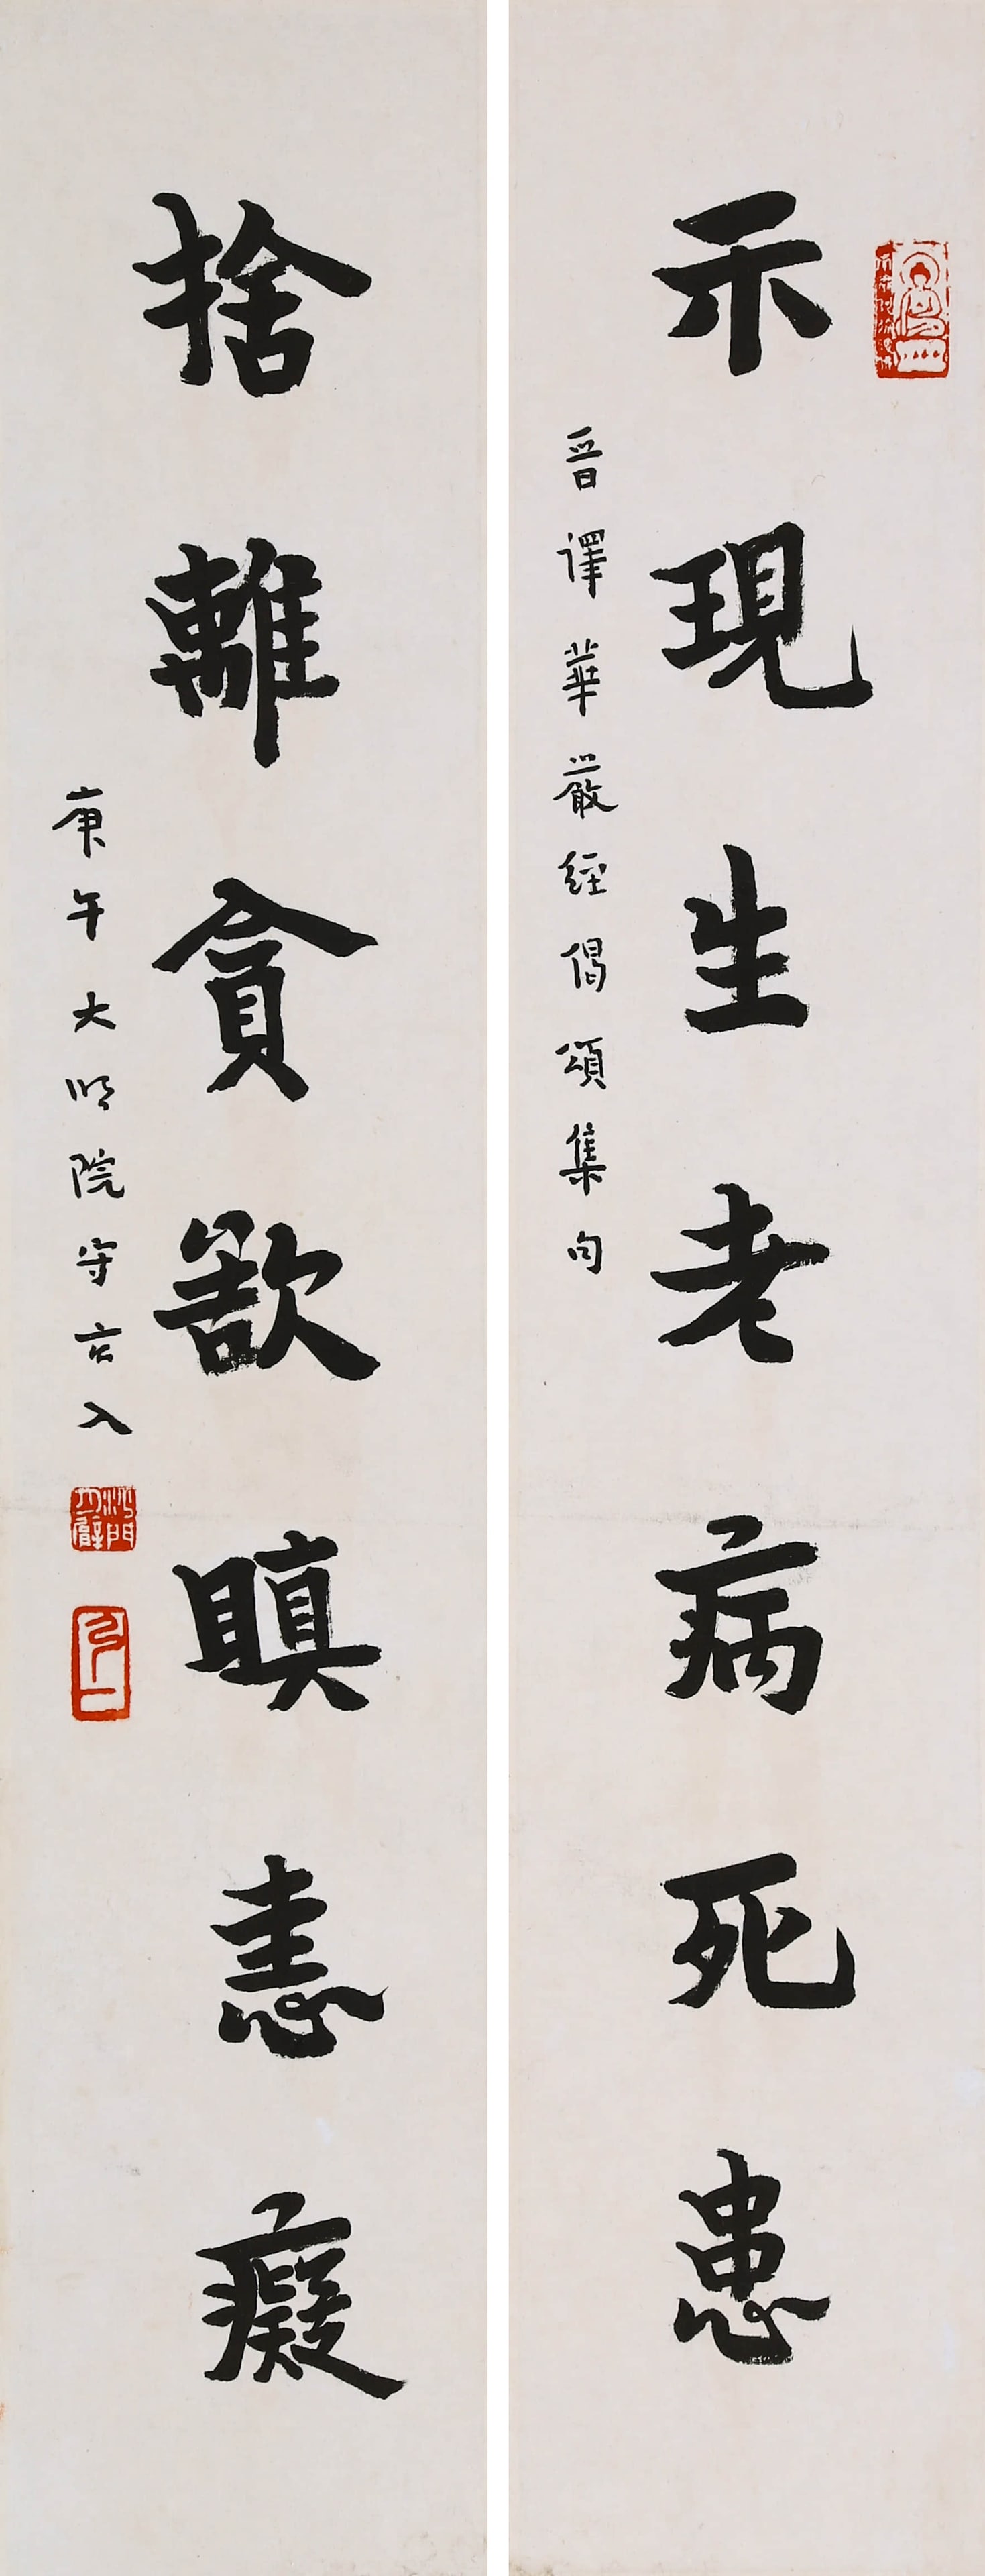 示現生老病死患
晉譯華嚴經偈頌集句
捨離貪欲瞋恚癡
庚午大明院守入
沙門月臂
弘一